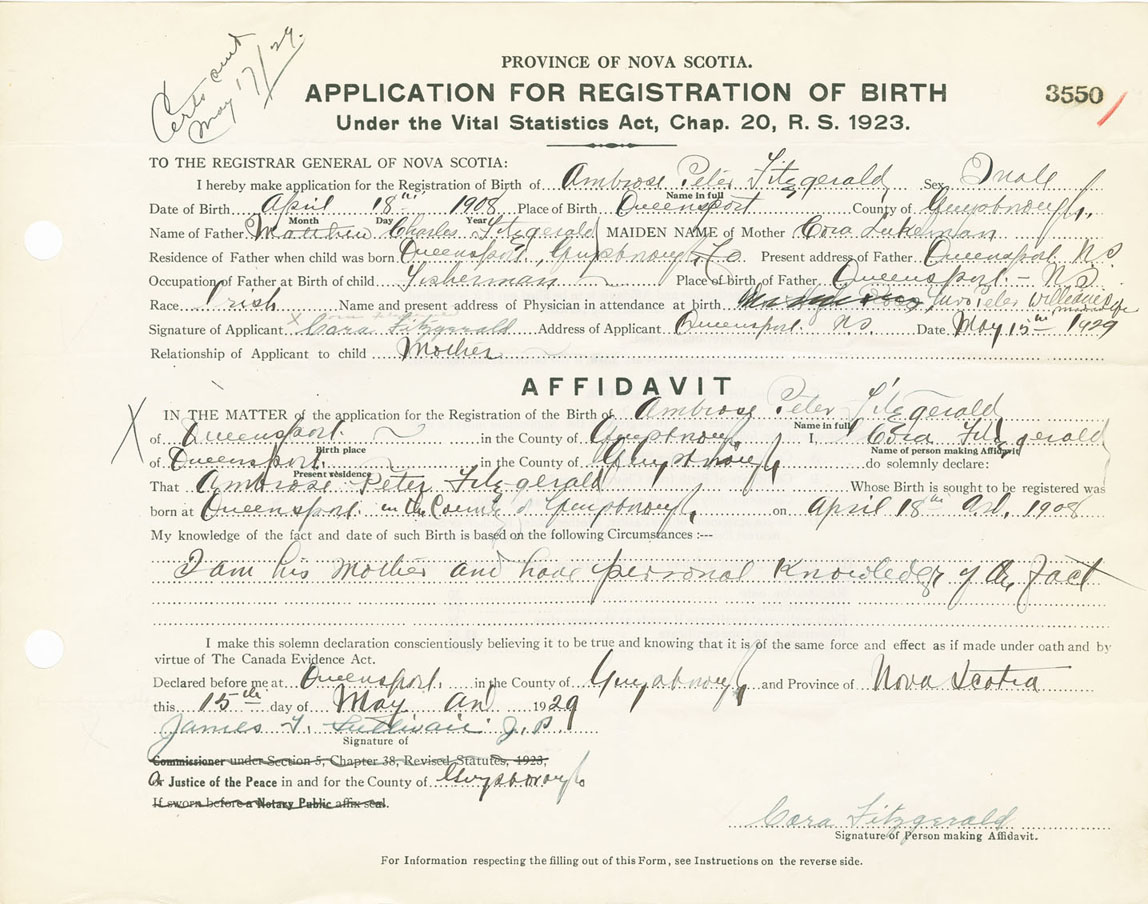 Certs sent
May 17/29.
PROVINCE OF NOVA SCOTIA.
APPLICATION FOR REGISTRATION OF BIRTH
3550
Under the Vital Statistics Act, Chap. 20, R. S. 1923.
TO THE REGISTRAR GENERAL OF NOVA SCOTIA:
I hereby make application for the Registration of Birth of Ambrose Peter Fitzgerald Sex Male
Name in full
Date of Birth April 18th 1908 Place of Birth Queensport County of Guysborough
Month Day Year
Name of Father Matthew Charles Fitzgerald MAIDEN NAME of Mother Cora Lukeman
Residence of Father when child was born Queensport, Guysborough Co Present address of Father Queensport N S
Occupation of Father at Birth of child Fisherman Place of birth of Father Queensport - N S
Race Irish Name and present address of Physician in attendance at birth Mrs Peter Williams midwife
Signature of Applicant X Cora Fitzgerald Address of Applicant Queensport N S Date May 15th 1929
Relationship of Applicant to child Mother
AFFIDAVIT
X IN THE MATTER of the application for the Registration of the Birth of Ambrose Peter Fitzgerald
Name in full
of Queensport in the County of Guysborough I, Cora Fitzgerald
Birth place Name of person making Affidavit
of Queensport in the County of Guysborough do solemnly declare:
Present residence
That Ambrose Peter Fitzgerald Whose Birth is sought to be registered was
born at Queensport in the County of Guysborough on April 18th A.D. 1908
My knowledge of the fact and date of such Birth is based on the following Circumstances :---
I am his Mother and have personal Knowledge of the Fact
I make this solemn declaration conscientiously believing it to be true and knowing that it is of the same force and effect as if made under oath and by
virtue of The Canada Evidence Act.
Declared before me at Queensport in the County of Guysborough and Province of Nova Scotia
this 15th day of May 1929
James Sullivan J. P.
Signature of
Commissioner under Section 5, Chapter 38, Revised Statutes, 1923,
Or Justice of the Peace in and for the County of Guysborough
If sworn before a Notary Public affix seal.
Cora Fitzgerald
Signature of Person making Affidavit.
For Information respecting the filling out of this Form, see Instructions on the reverse side.